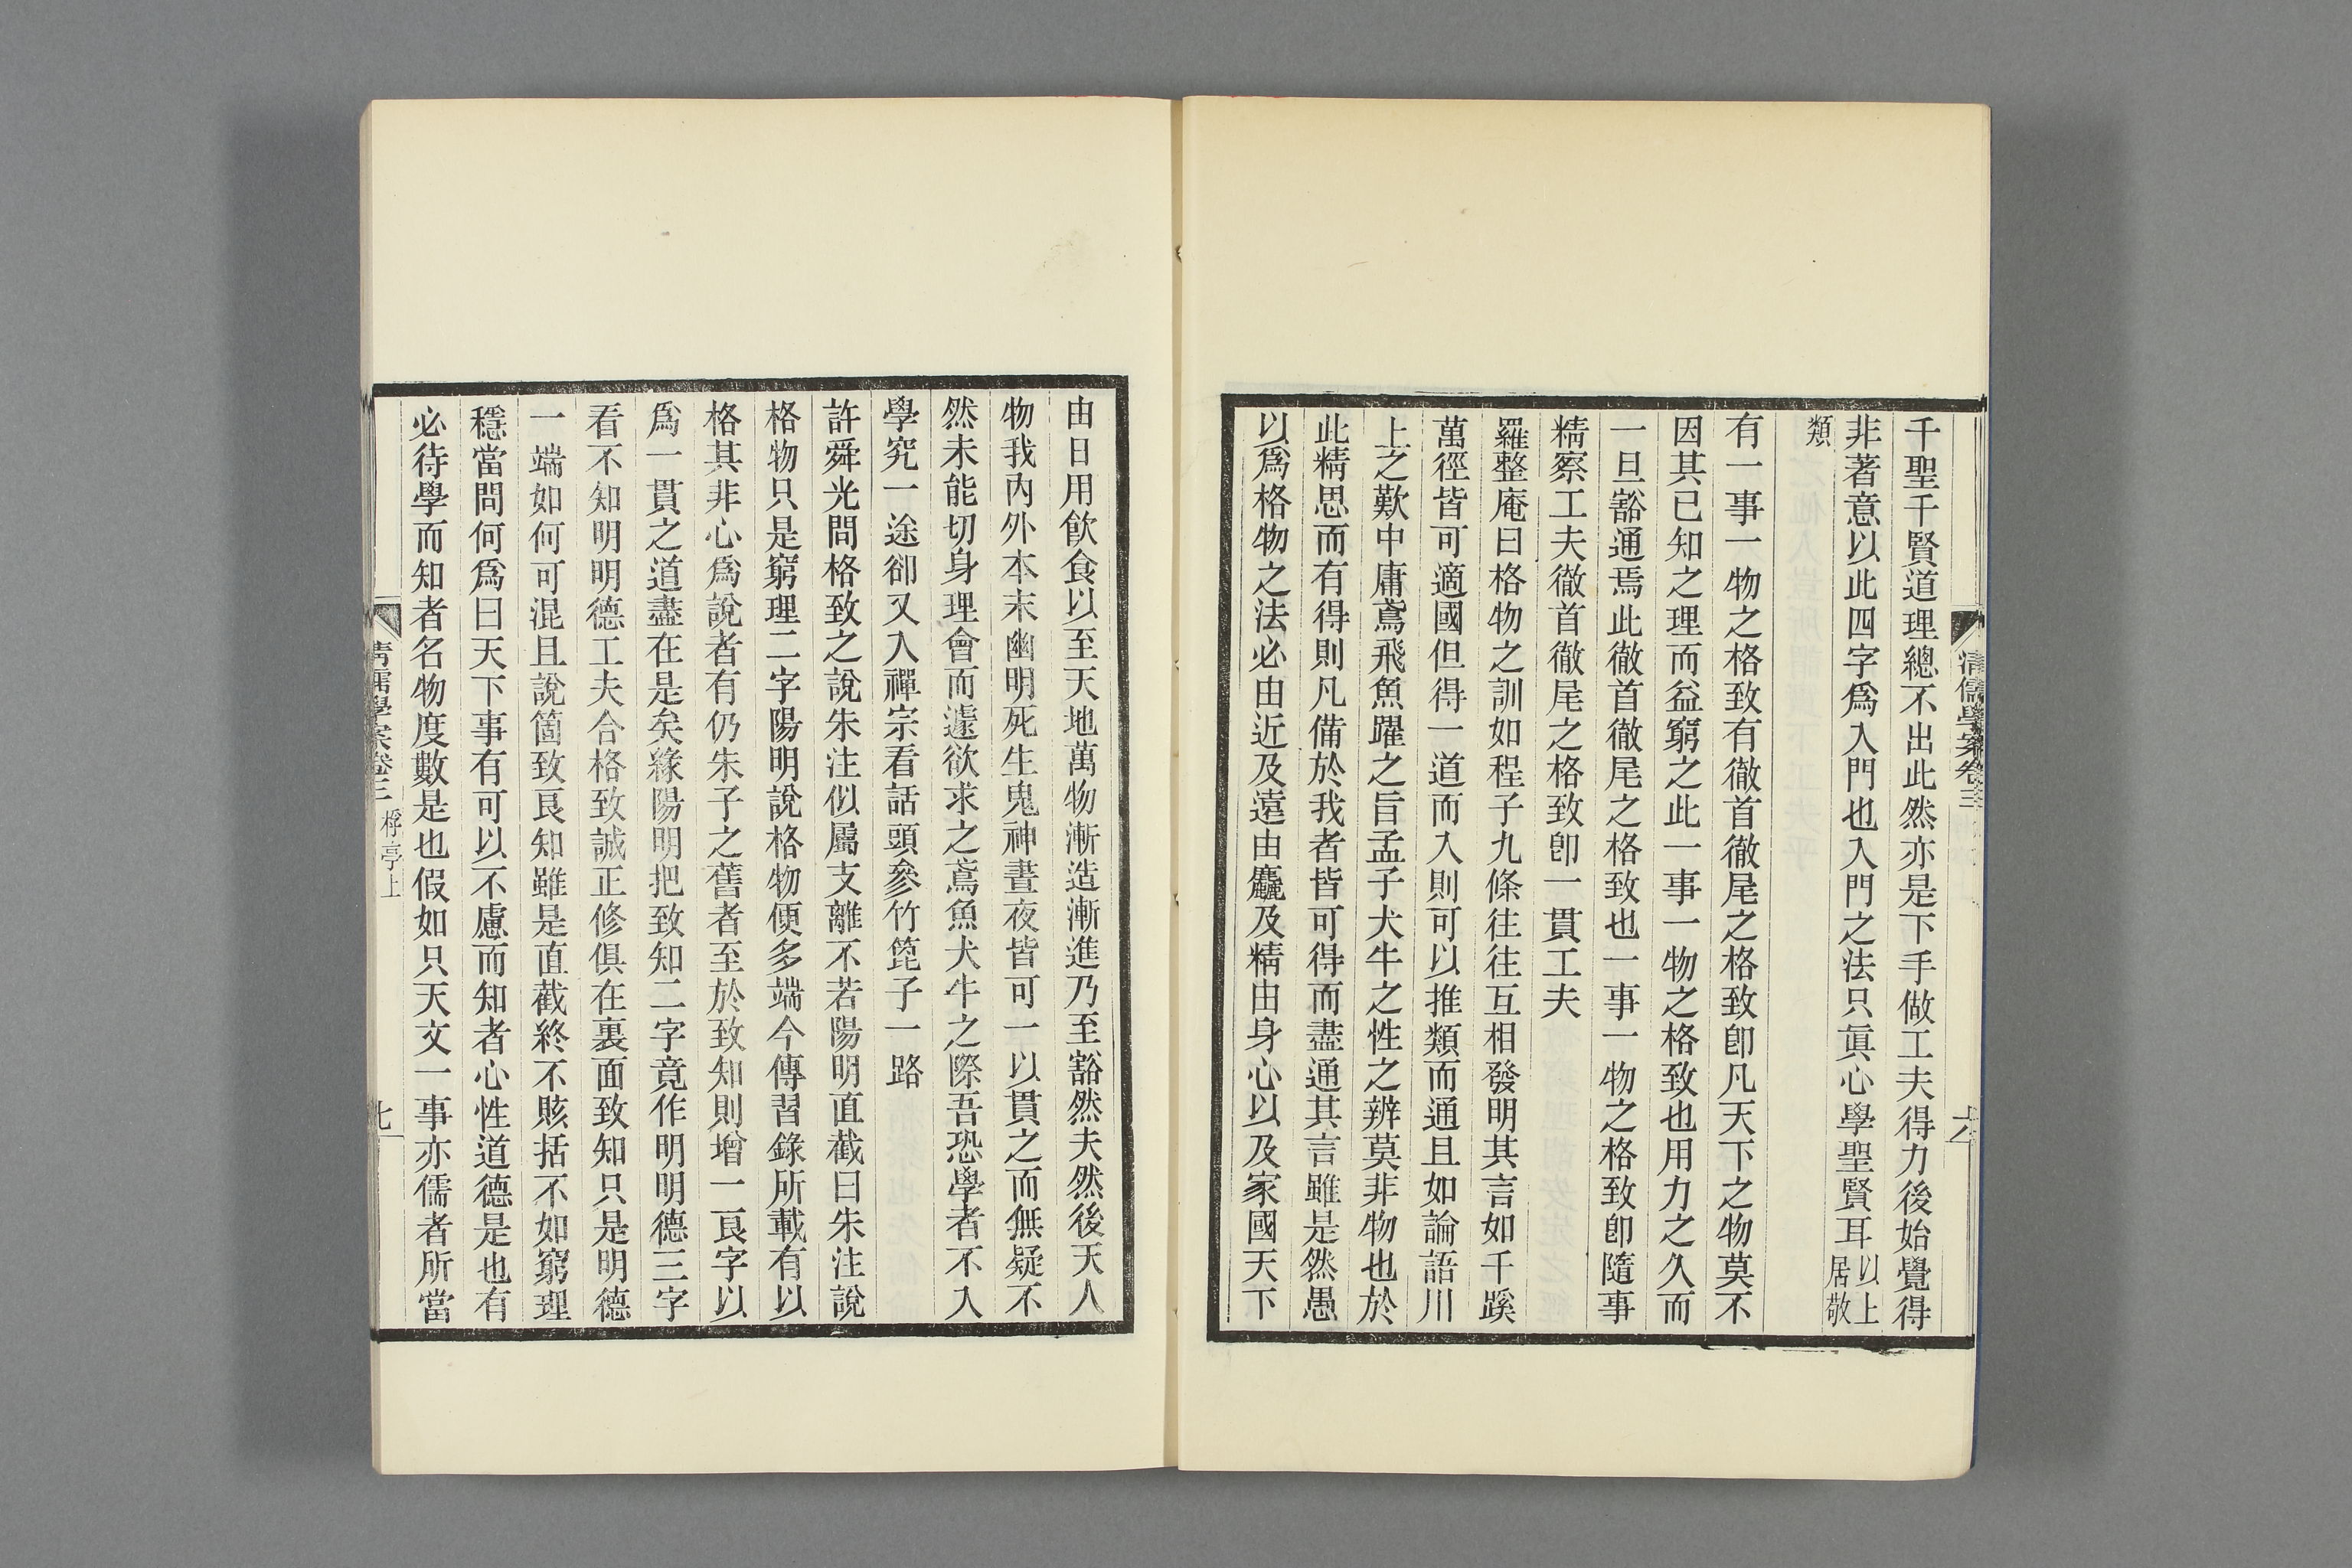 千聖千賢道理總不出此然亦是下手做工夫得力後始覺得
非著意以此四字爲入門也入門之法只眞心學聖賢耳以上居敬
類
有一事一物之格致有徹首徹尾之格致卽凡天下之物莫不
因其已知之理而益窮之此一事一物之格致也用力之久而
一旦豁通焉此徹首徹尾之格致也一事一物之格致卽隨事
精察工夫徹首徹尾之格致卽一貫工夫
羅整庵曰格物之訓如程子九條往往互相發明其言如千蹊
萬徑皆可適國但得一道而入則可以推類而通且如論語川
上之歎中庸鳶飛魚躍之旨孟子犬牛之性之辨莫非物也於
此精思而有得則凡備於我者皆可得而盡通其言雖是然愚
以爲格物之法必由近及遠由麤及精由身心以及家國天下
清儒學案卷三
六
由日用飲食以至天地萬物漸造漸進乃至豁然夫然後天人
物我內外本末幽明死生鬼神晝夜皆可一以貫之而無疑不
然未能切身理會而遽欲求之鳶魚犬牛之際吾恐學者不入
學究一途卻又入禪宗看話頭參竹篦子一路
許舜光問格致之說朱注似屬支離不若陽明直截曰朱注說
格物只是窮理二字陽明說格物便多端今傳習錄所載有以
格其非心爲說者有仍朱子之舊者至於致知則增一良字以
爲一貫之道盡在是矣緣陽明把致知二字竟作明明德三字
看不知明明德工夫合格致誠正修俱在裏面致知只是明德
一端如何可混且說箇致良知雖是直截終不賅括不如窮理
穩當問何爲曰天下事有可以不慮而知者心性道德是也有
必待學而知者名物度數是也假如只天文一事亦儒者所當
清儒學案卷三 桴亭上
七